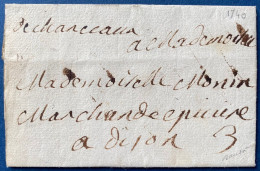 De Chanceaux
1740
a Mademoiselle
Mademoiselle Monin
Marchande epiciere
a dijon 3